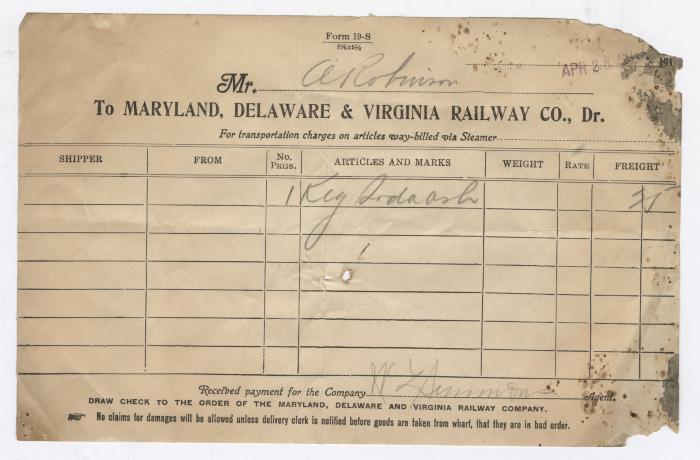 Form 19-S
8¾x5¼
APR 2 191
Mr. A Robinson
To MARYLAND, DELAWARE & VIRGINIA RAILWAY CO., Dr.
For transportation charges on articles way-billed via Steamer
SHIPPER FROM No. Pkgs. ARTICLES AND MARKS WEIGHT RATE FREIGHT
1 Keg Soda ash 25
Received payment for the Company W Simmons Agent.
DRAW CHECK TO THE ORDER OF THE MARYLAND, DELAWARE AND VIRGINIA RAILWAY COMPANY.
No claims for damages will be allowed unless delivery clerk is notified before goods are taken from wharf, that they are in bad order.